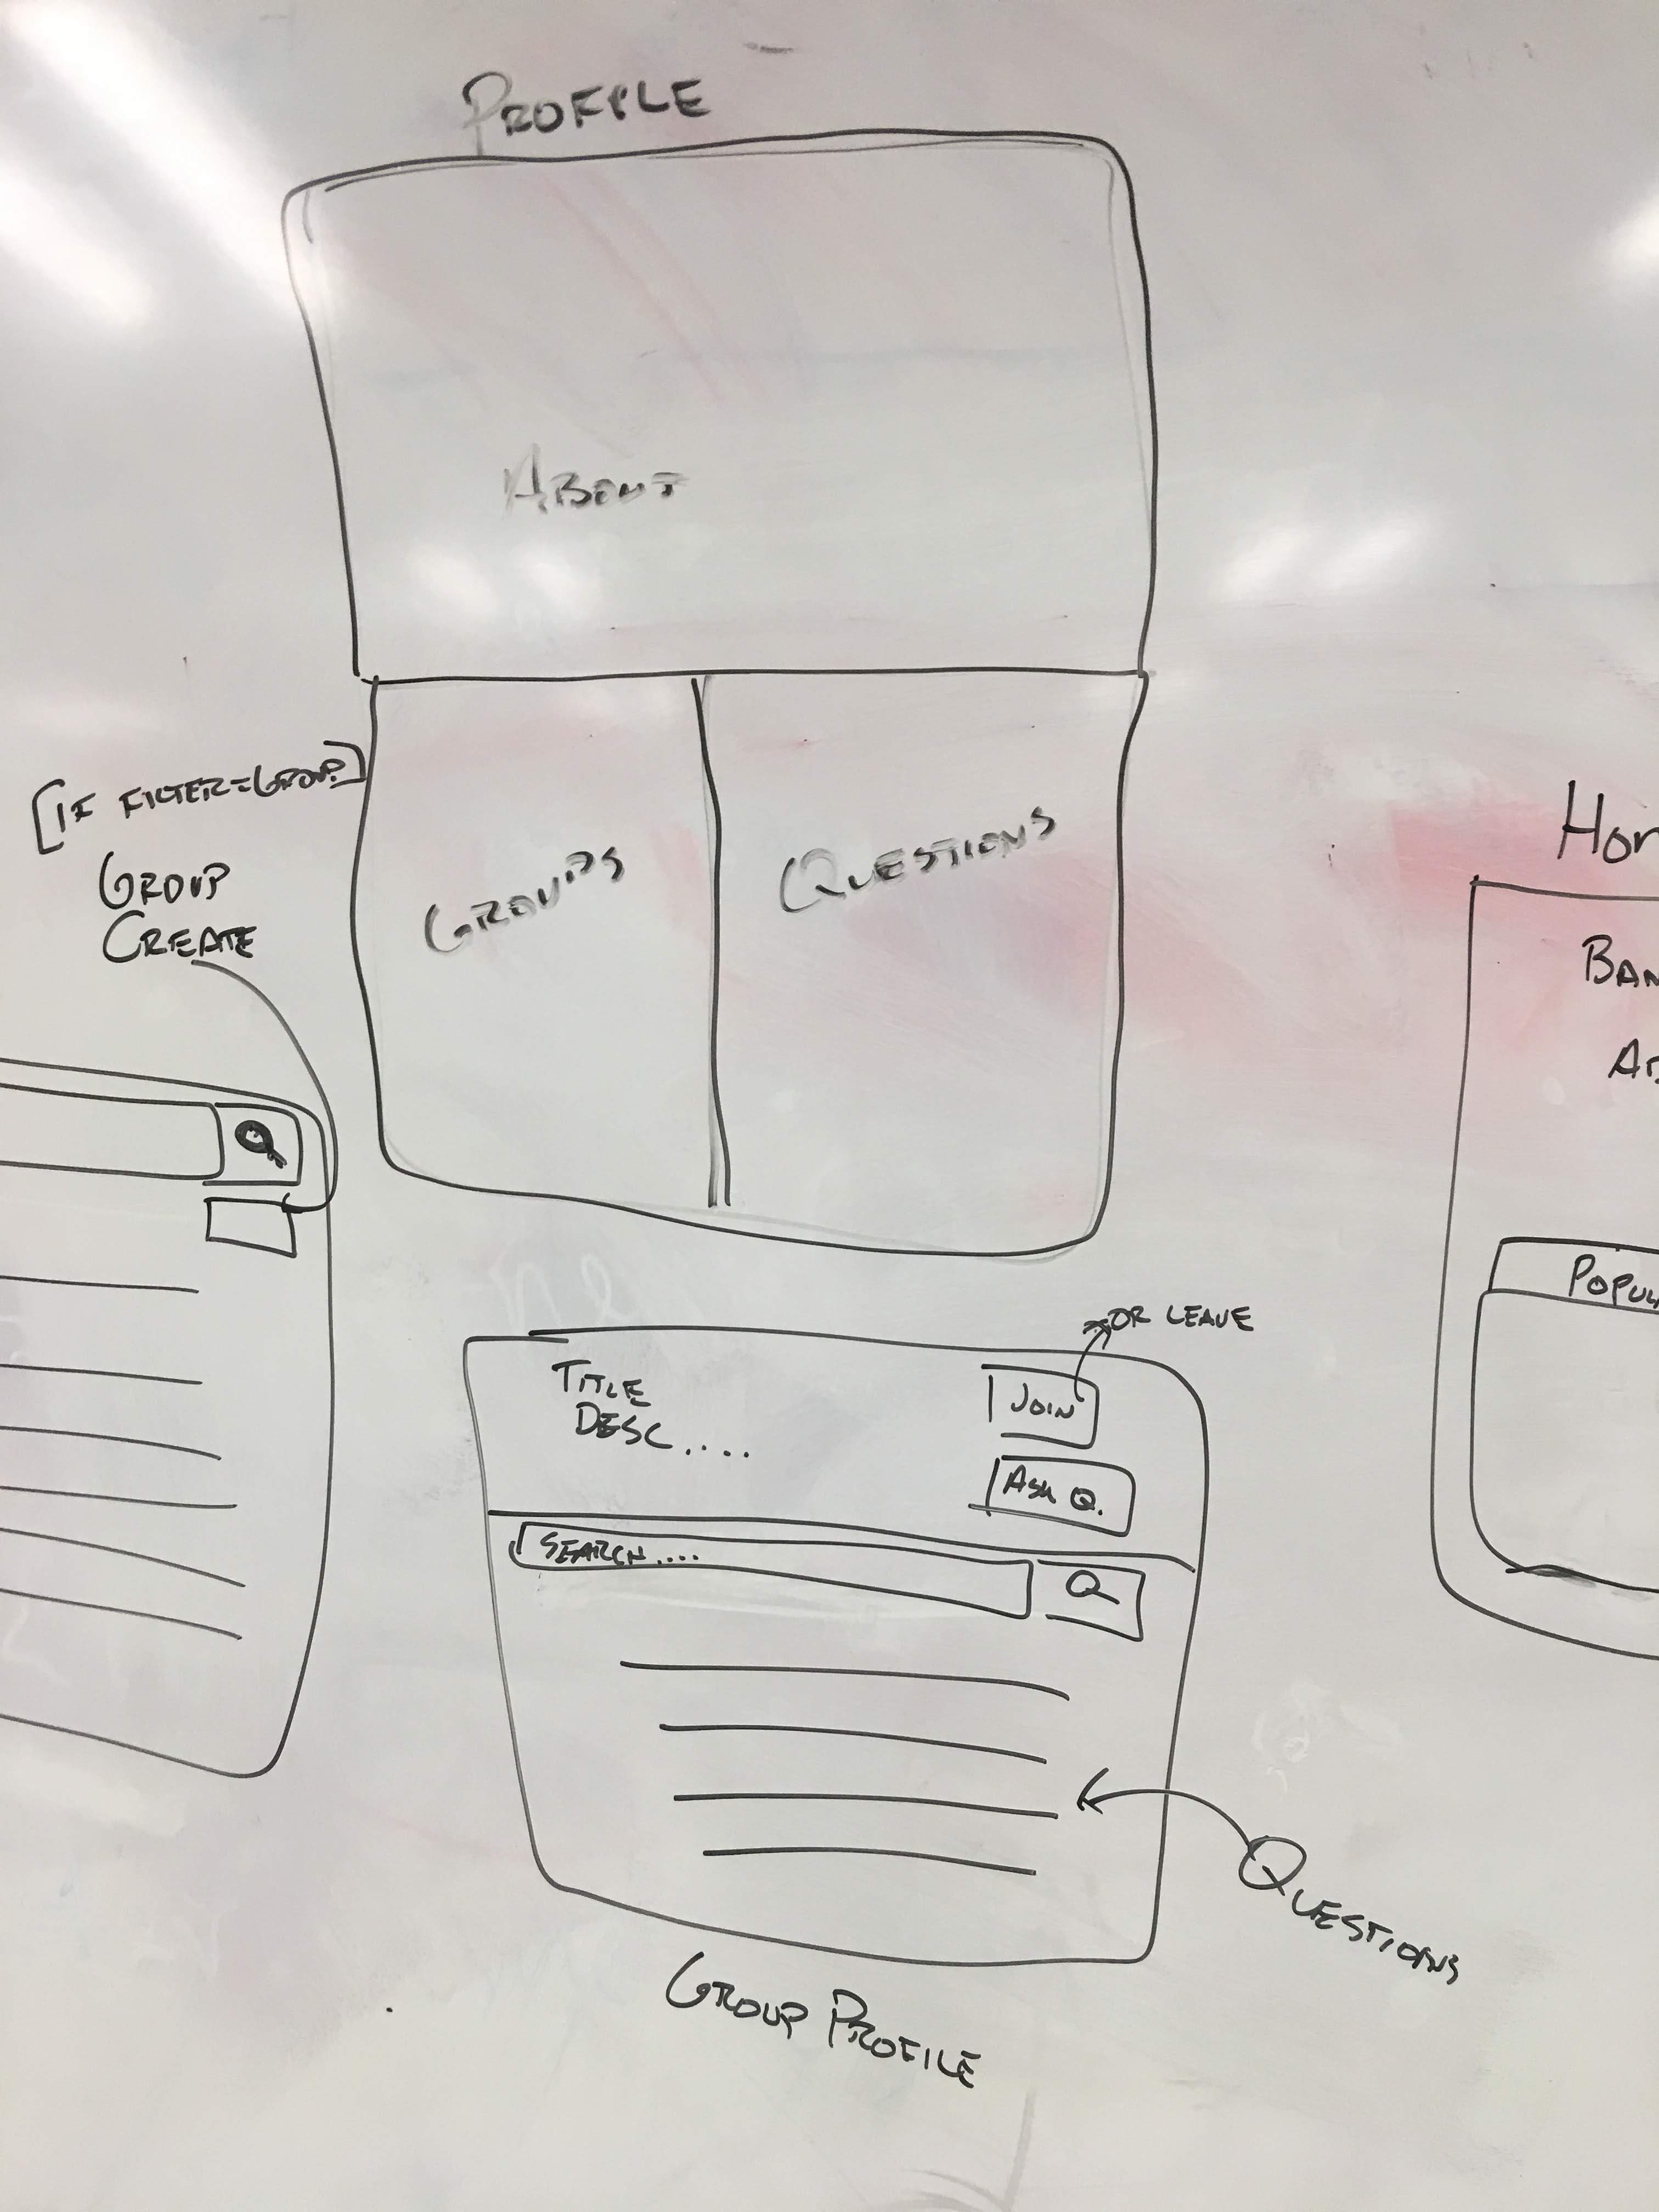 PROFILE
ABOUT
GROUPS
QUESTIONS
[IF FILTER=GROUP]
GROUP
CREATE
OR LEAVE
TITLE
DESC....
JOIN
ASK Q.
SEARCH....
QUESTIONS
GROUP PROFILE
HOM
BAN
POPUL